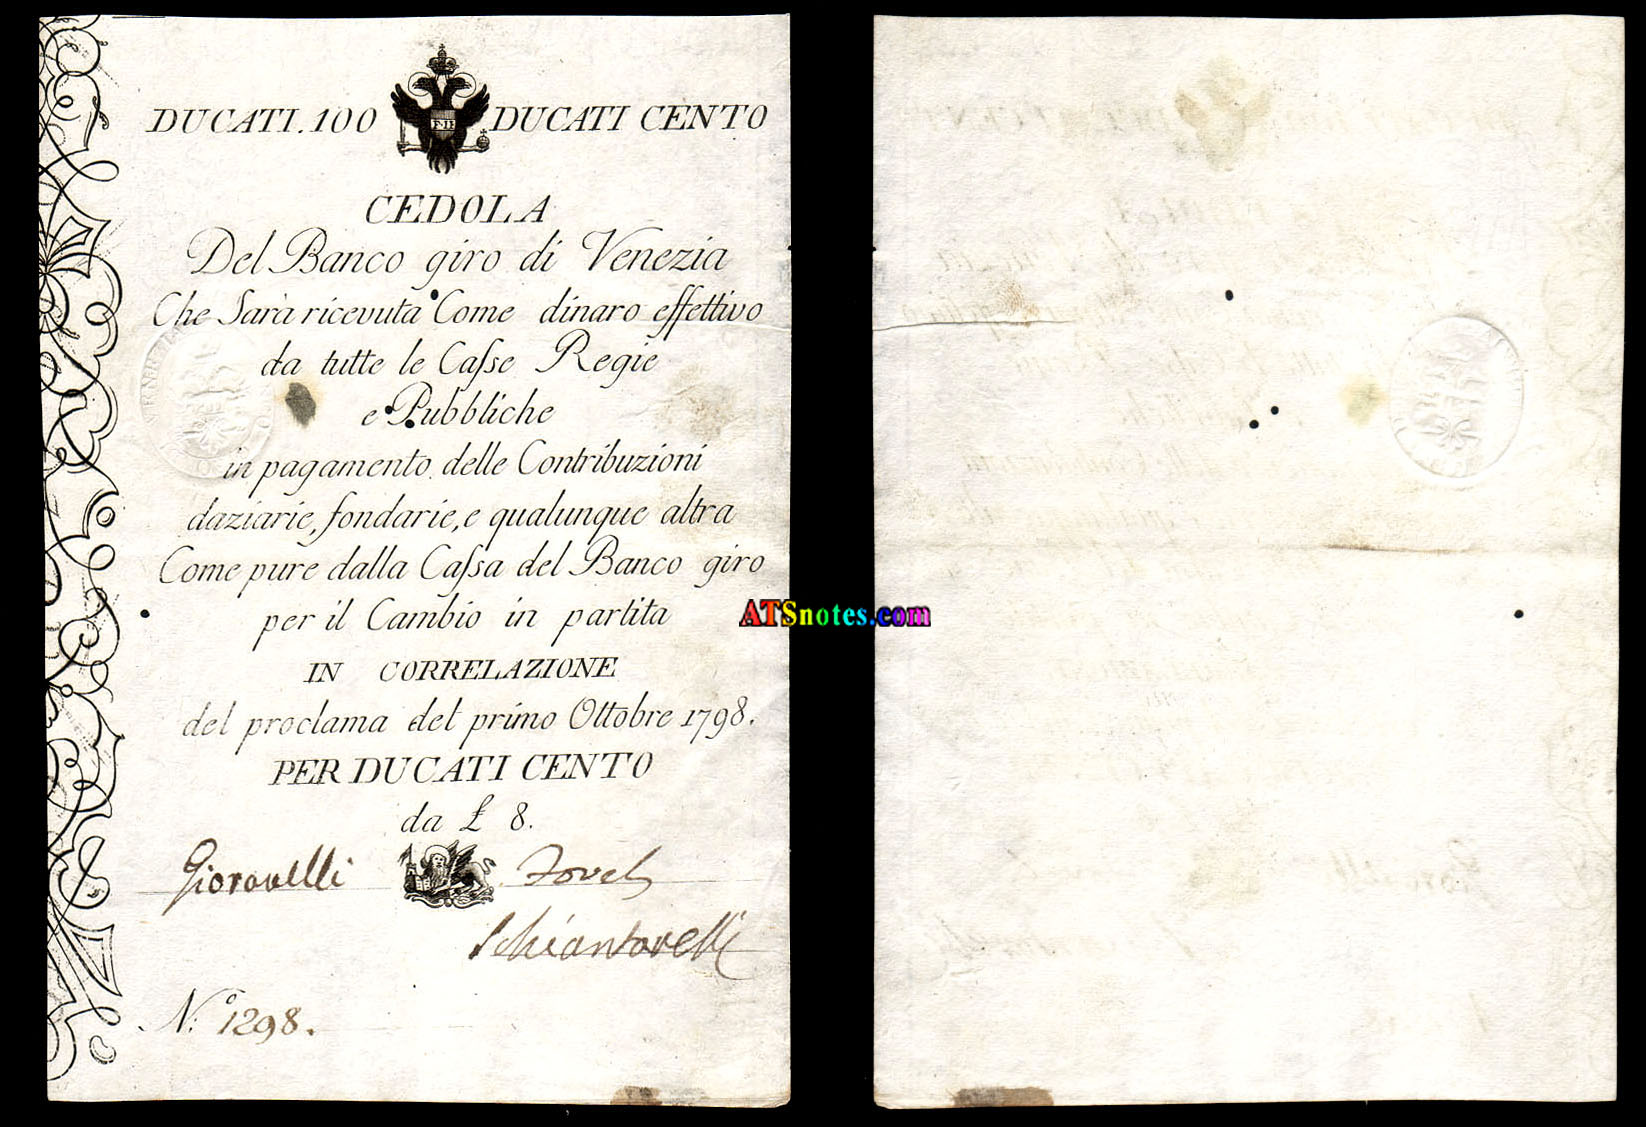 DUCATI.100 DUCATI CENTO
F·II
CEDOLA
Del Banco giro di Venezia
Che Sarà ricevuta Come dinaro effettivo
da tutte le Caſse Regie
e Pubbliche
in pagamento delle Contribuzioni
daziarie, fondarie, e qualunque altra
Come pure dalla Caſsa del Banco giro
per il Cambio in partita
IN CORRELAZIONE
del proclama del primo Ottobre 1798.
PER DUCATI CENTO
da £ 8.
Gioravelli
Schiantarelli
N:º 1298.
ATSnotes.com